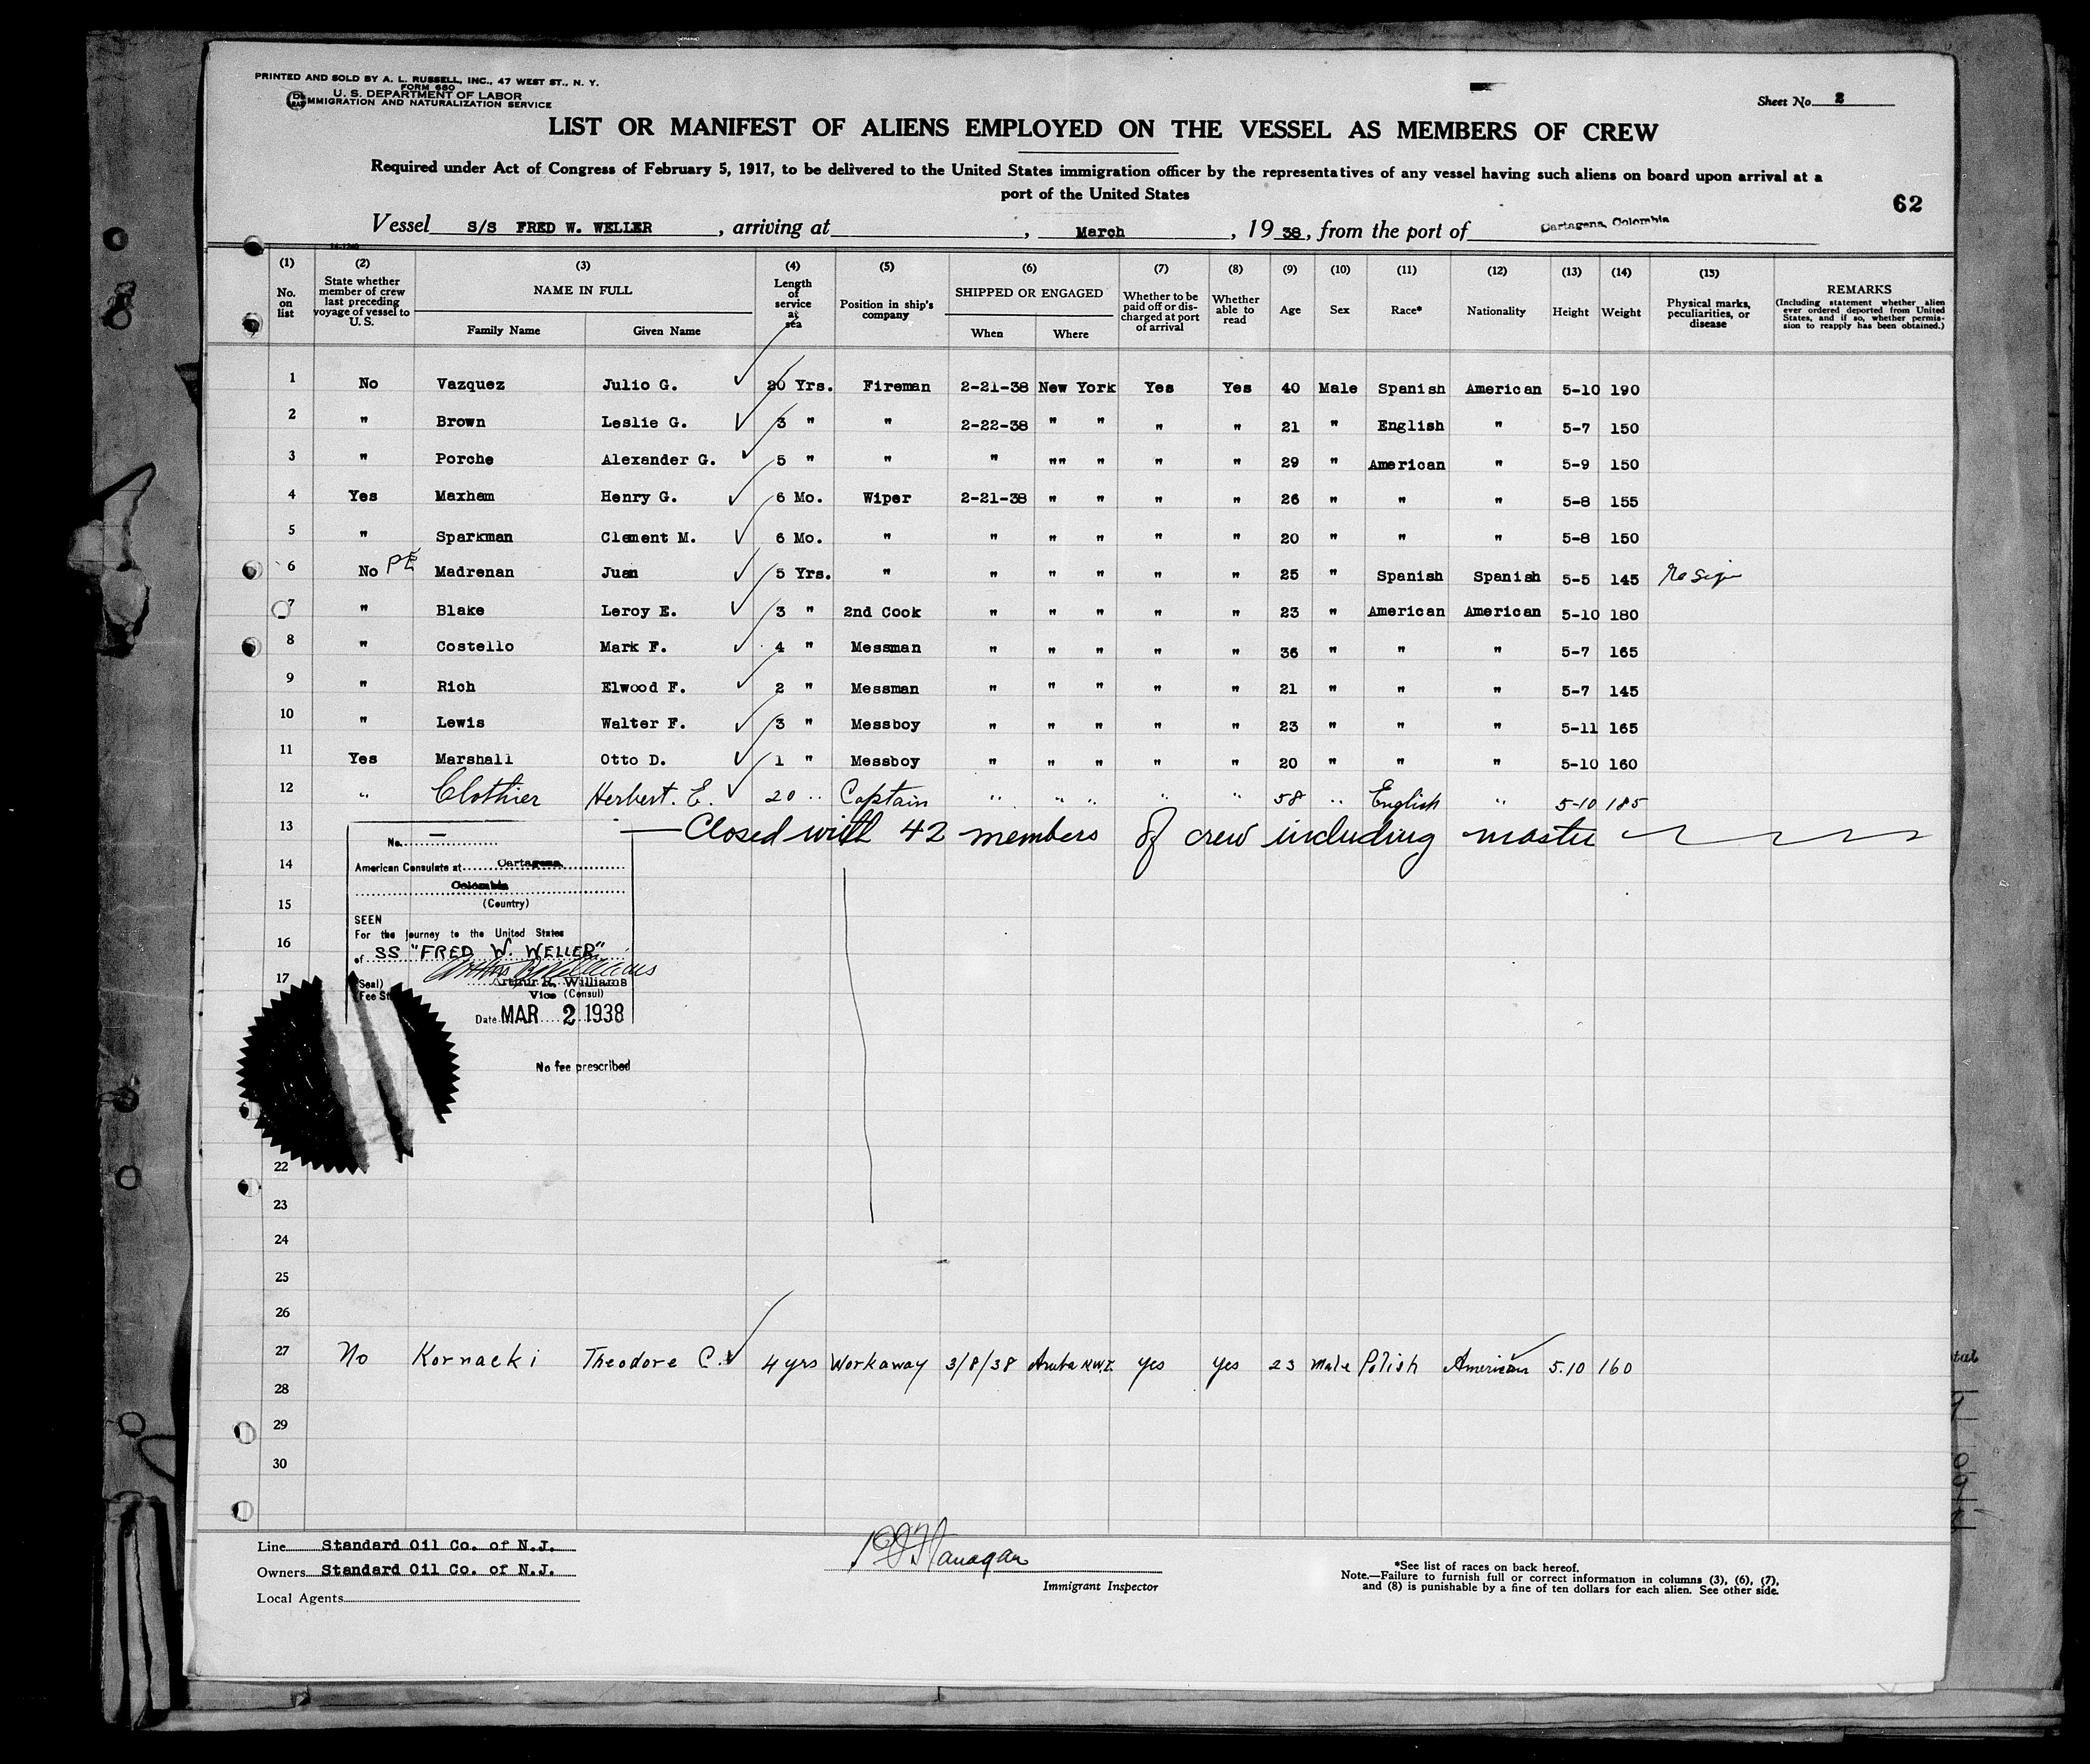 PRINTED AND SOLD BY A. L. RUSSELL, INC., 47 WEST ST., N. Y.
FORM 680
U. S. DEPARTMENT OF LABOR
IMMIGRATION AND NATURALIZATION SERVICE
Sheet No. 2
LIST OR MANIFEST OF ALIENS EMPLOYED ON THE VESSEL AS MEMBERS OF CREW
Required under Act of Congress of February 5, 1917, to be delivered to the United States immigration officer by the representatives of any vessel having such aliens on board upon arrival at a
port of the United States
62
Vessel S/S FRED W. WELLER, arriving at , March, 1938, from the port of Cartagena, Colombia
(1) No. on list (2) State whether member of crew last preceding voyage of vessel to U. S. (3) NAME IN FULL Family Name Given Name (4) Length of service at sea (5) Position in ship's company (6) SHIPPED OR ENGAGED When Where (7) Whether to be paid off or discharged at port of arrival (8) Whether able to read (9) Age (10) Sex (11) Race* (12) Nationality (13) Height (14) Weight (15) Physical marks, peculiarities, or disease REMARKS (Including statement whether alien ever ordered deported from United States, and if so, whether permission to reapply has been obtained.)
1 No Vazquez Julio G. 20 Yrs. Fireman 2-21-38 New York Yes Yes 40 Male Spanish American 5-10 190
2 " Brown Leslie G. 3 " " 2-22-38 " " " " 21 " English " 5-7 150
3 " Porche Alexander G. 5 " " " "" " " " 29 " American " 5-9 150
4 Yes Maxham Henry G. 6 Mo. Wiper 2-21-38 " " " " 26 " " " 5-8 155
5 " Sparkman Clement M. 6 Mo. " " " " " " 20 " " " 5-8 150
6 No Madrenan Juan 5 Yrs. " " " " " " 25 " Spanish Spanish 5-5 145
7 " Blake Leroy E. 3 " 2nd Cook " " " " " 23 " American American 5-10 180
8 " Costello Mark F. 4 " Messman " " " " " 36 " " " 5-7 165
9 " Rich Elwood F. 2 " Messman " " " " " 21 " " " 5-7 145
10 " Lewis Walter F. 3 " Messboy " " " " " 23 " " " 5-11 165
11 Yes Marshall Otto D. 1 " Messboy " " " " " 20 " " " 5-10 160
12 " Clothier Herbert. E. 20 " Captain " " " " " 58 " English " 5-10 185
13 Closed with 42 members of crew including master
14
15
16
17
22
23
24
25
26
No.
American Consulate at Cartagena,
Colombia
(Country)
SEEN
For the journey to the United States
of SS "FRED W. WELLER"
Arthur R. Williams
(Seal) Vice (Consul)
Date MAR 2 1938
No fee prescribed
27 No Kornacki Theodore C. 4 yrs Workaway 3/8/38 Aruba N.W.I. yes yes 23 Male Polish American 5.10 160
28
29
30
Line Standard Oil Co. of N.J.
Owners Standard Oil Co. of N.J.
Local Agents
Immigrant Inspector
*See list of races on back hereof.
Note.—Failure to furnish full or correct information in columns (3), (6), (7),
and (8) is punishable by a fine of ten dollars for each alien. See other side.